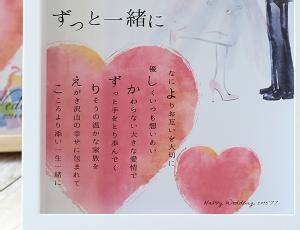 ずっと一緒に
なによりお互いを大切に
優しくいつも想いあい
かわらない大きな愛情で
ずっと手をとり歩んでく
りそうの温かな家族を
えがき沢山の幸せに包まれて
こころより添い一生一緒に
Happy Wedding 2015.7.7